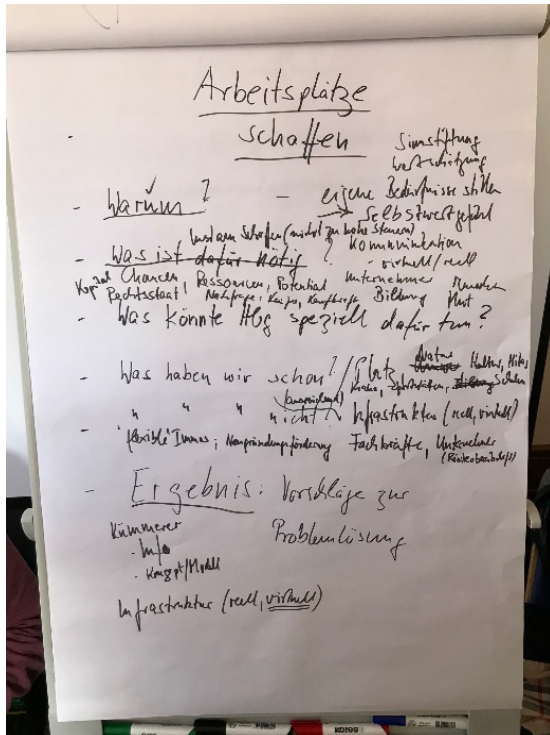 Arbeitsplätze
schaffen
Sinnstiftung
Wertschätzung
- Warum? - eigene Bedürfnisse stillen
→ Selbstwertgefühl
Lust am Schaffen (nicht zu hohe Steuern)
- Was ist dafür nötig? Kommunikation
- virtuell / reell
Kapital Chancen, Ressourcen, Potential Unternehmer Kunden
Rechtsstaat, Nachfrage, Kaufkraft Bildung Mut
- Was könnte Hbg speziell dafür tun?
- Was haben wir schon? / Platz, Natur, Kultur,
Schulen
(ausreichend)
- " " " " nicht? Infrastruktur (reell, virtuell)
"flexible" Immos, Neugründungsförderung Fachkräfte, Unternehmer
(Risikobereitschaft)
- Ergebnis: Vorschläge zur
Problemlösung
Kümmerer
- Info
- Konzept/Modell
Infrastruktur (reell, virtuell)